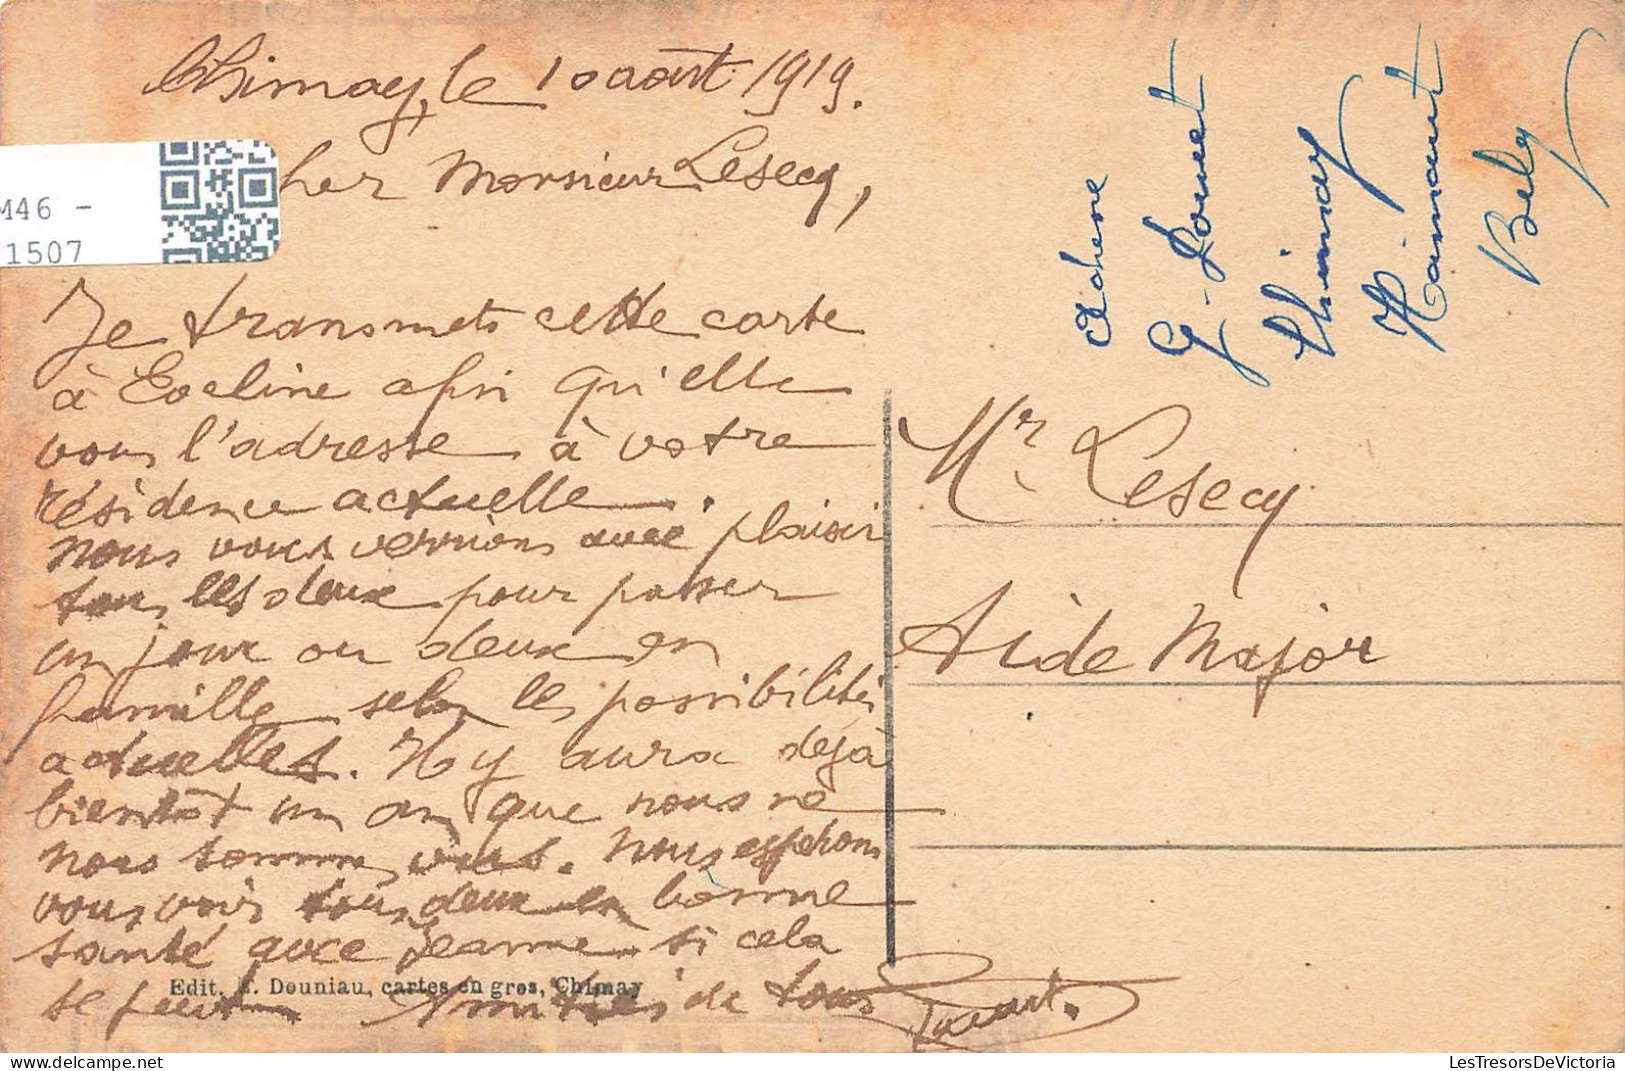 Chimay, le 10 août 1919.
Cher Monsieur Lesecq,
Je transmets cette carte
à Eveline afin qu'elle
vous l'adresse à votre
résidence actuelle.
nous vous verrions avec plaisir
tous les deux pour passer
un jour ou deux en
famille selon les possibilités
actuelles. Il y aura déjà
bientôt un an que nous ne
nous sommes vus. Nous espérons
vous voir tous deux en bonne
santé avec Jeanne si cela
se peut Amitiés de tous
Edit. Douniau, cartes en gros, Chimay
G. Jouet
Chimay
Hainaut
Belg
Mr Lesecq
Aide Major
M46 -
1507
LesTresorsDeVictoria